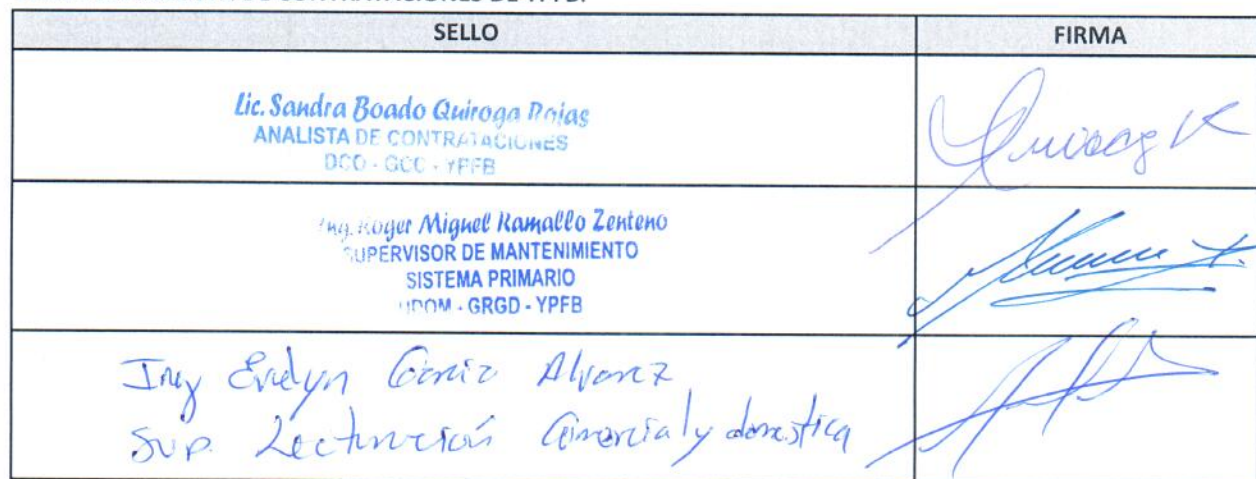 CONTRATACIONES DE YPFB.
SELLO FIRMA
Lic. Sandra Boado Quiroga Rojas
ANALISTA DE CONTRATACIONES
DCO - GCC - YPFB
Ing. Roger Miguel Ramallo Zenteno
SUPERVISOR DE MANTENIMIENTO
SISTEMA PRIMARIO
GRGD - YPFB
Ing Evelyn Alvarez
Sup. Lecturación Comercial y domestica